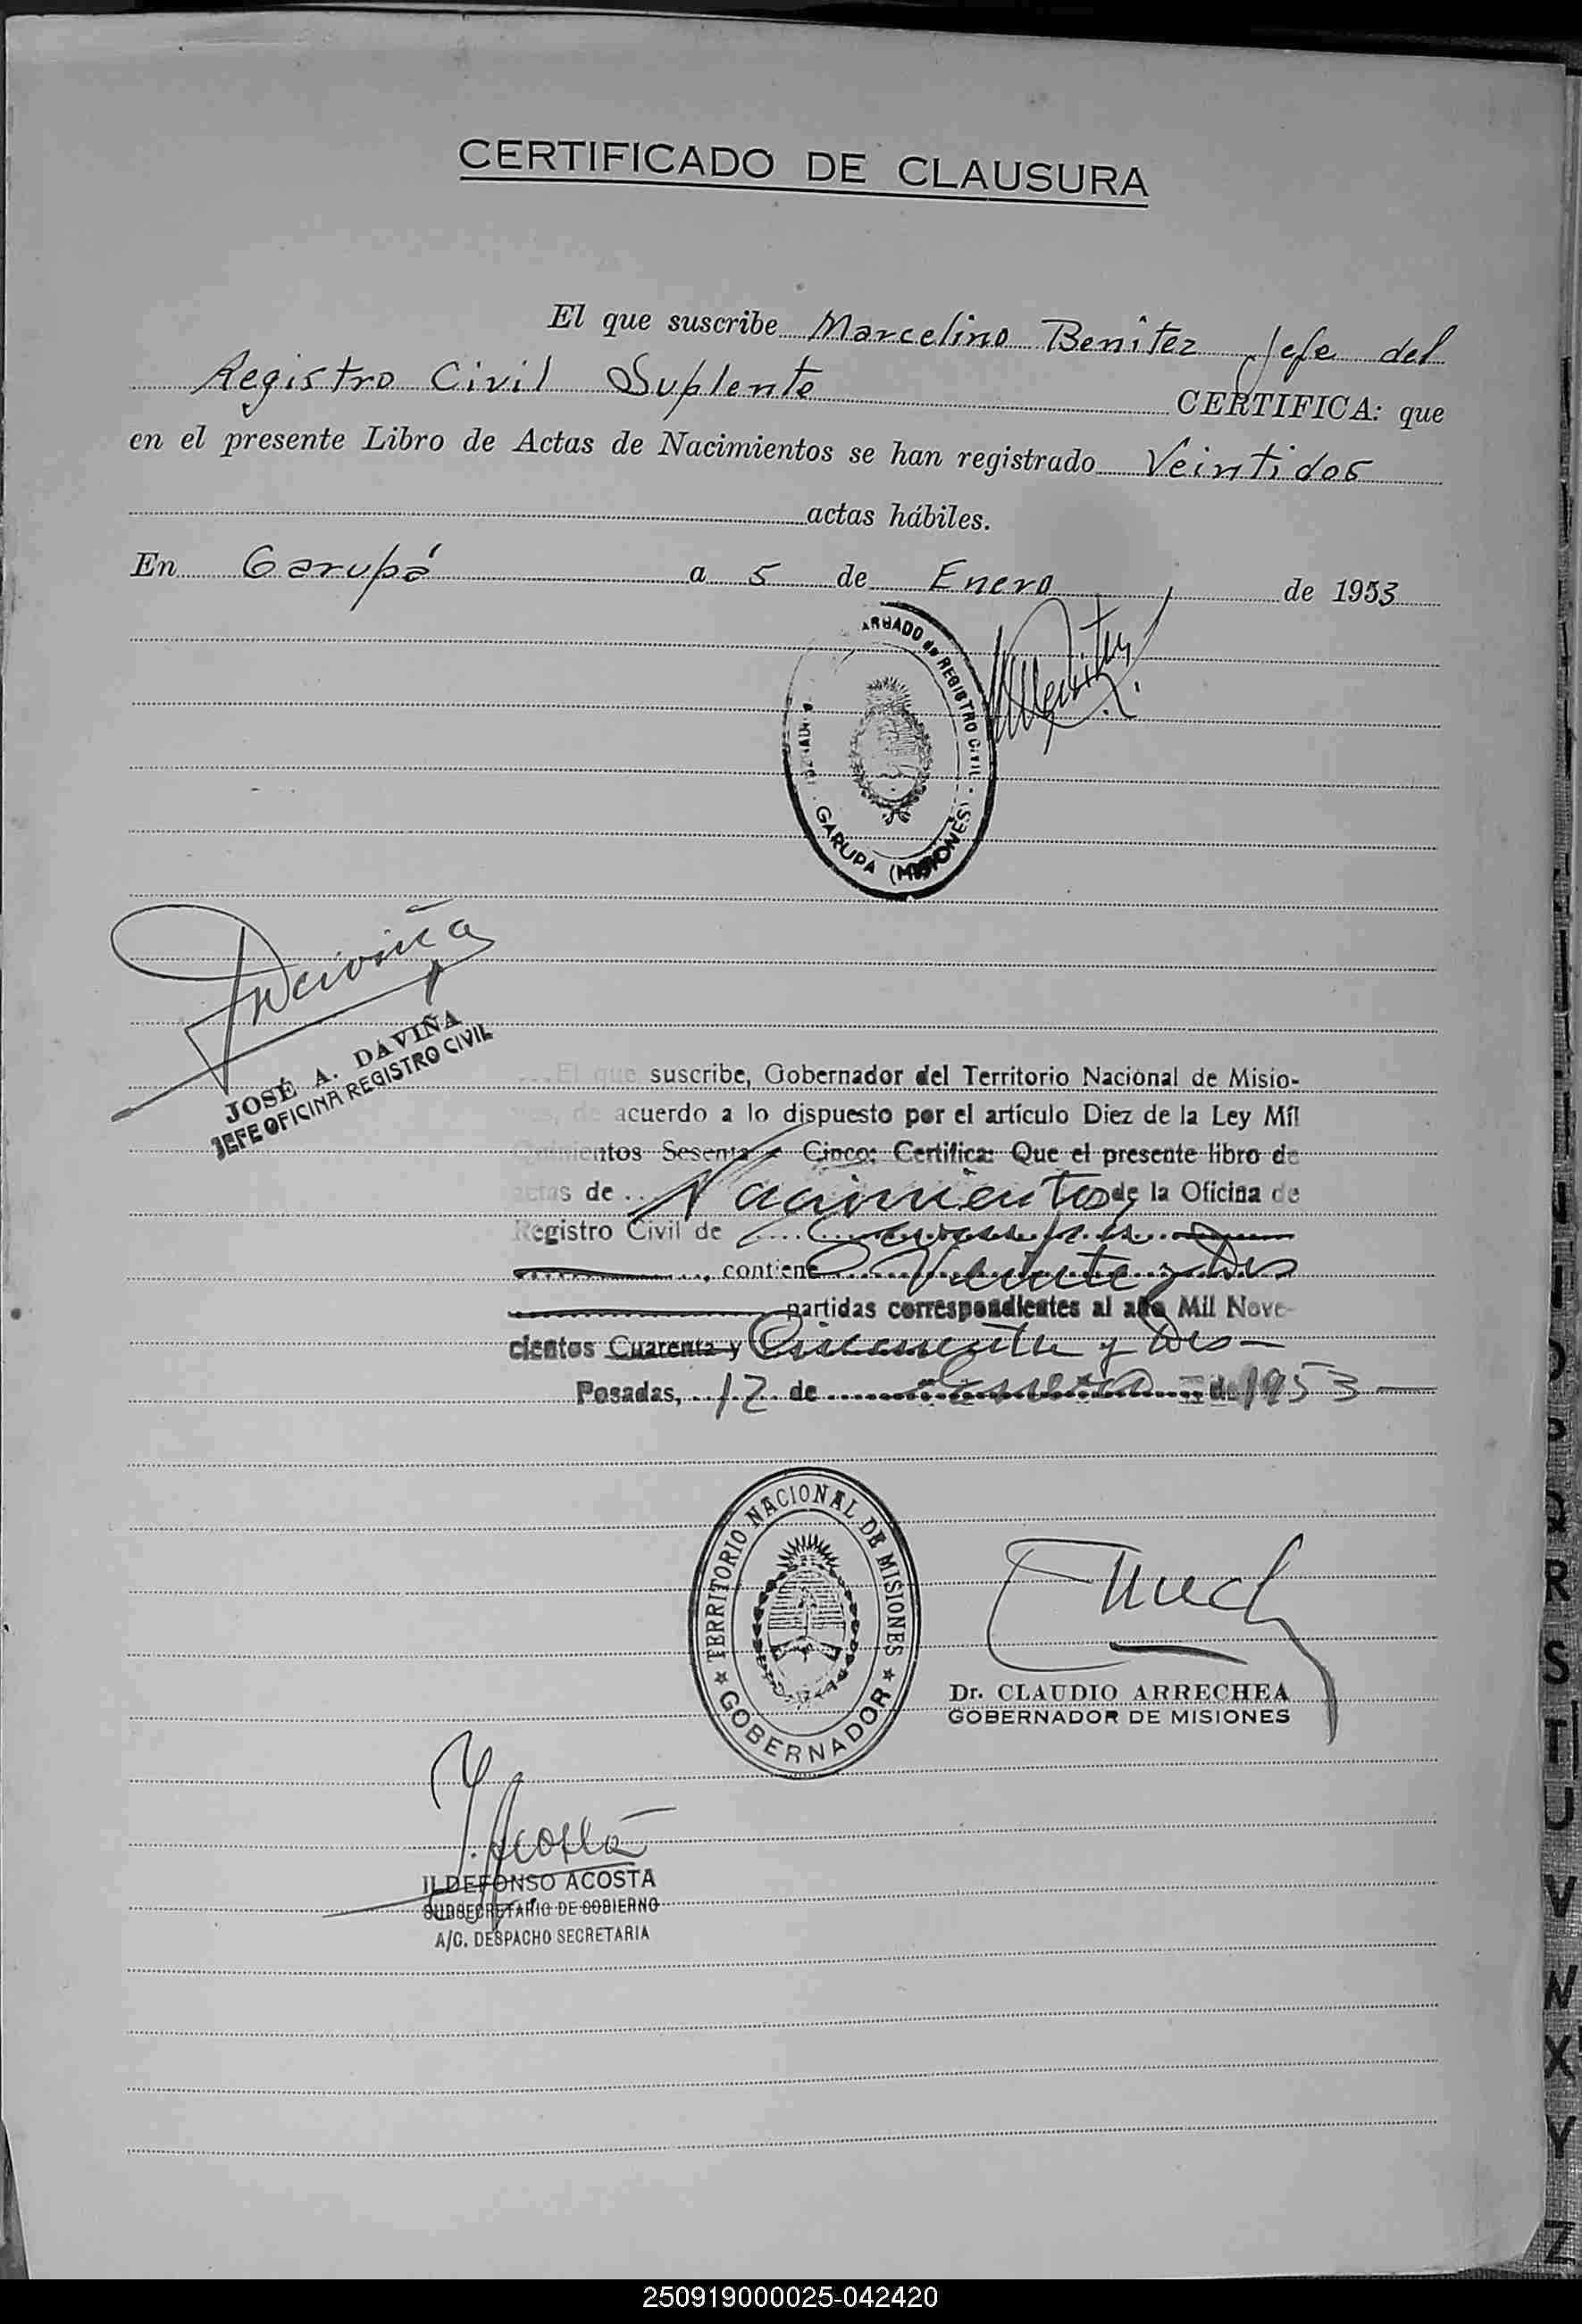 CERTIFICADO DE CLAUSURA
El que suscribe Marcelino Benitez Jefe del
Registro Civil Suplente CERTIFICA: que
en el presente Libro de Actas de Nacimientos se han registrado Veintidos
actas hábiles.
En Garupá a 5 de Enero de 1953
de REGISTRO CIVIL
GARUPA (MISIONES)
Daviña
JOSÉ A. DAVIÑA
JEFE OFICINA REGISTRO CIVIL
El que suscribe, Gobernador del Territorio Nacional de Misio-
nes, de acuerdo a lo dispuesto por el artículo Diez de la Ley Mil
Quinientos Sesenta y Cinco: Certifica: Que el presente libro de
actas de Nacimientos de la Oficina de
Registro Civil de Garupá
contiene Veinte y dos
partidas correspondientes al año Mil Nove-
cientos Cuarenta y Cincuenta y dos
Posadas, 12 de Enero de 1953
TERRITORIO NACIONAL DE MISIONES
GOBERNADOR
Dr. CLAUDIO ARRECHEA
GOBERNADOR DE MISIONES
I. Acosta
ILDEFONSO ACOSTA
SUBSECRETARIO DE GOBIERNO
A/C. DESPACHO SECRETARIA
P
Q
R
S
T
U
V
X
Y
Z
250919000025-042420